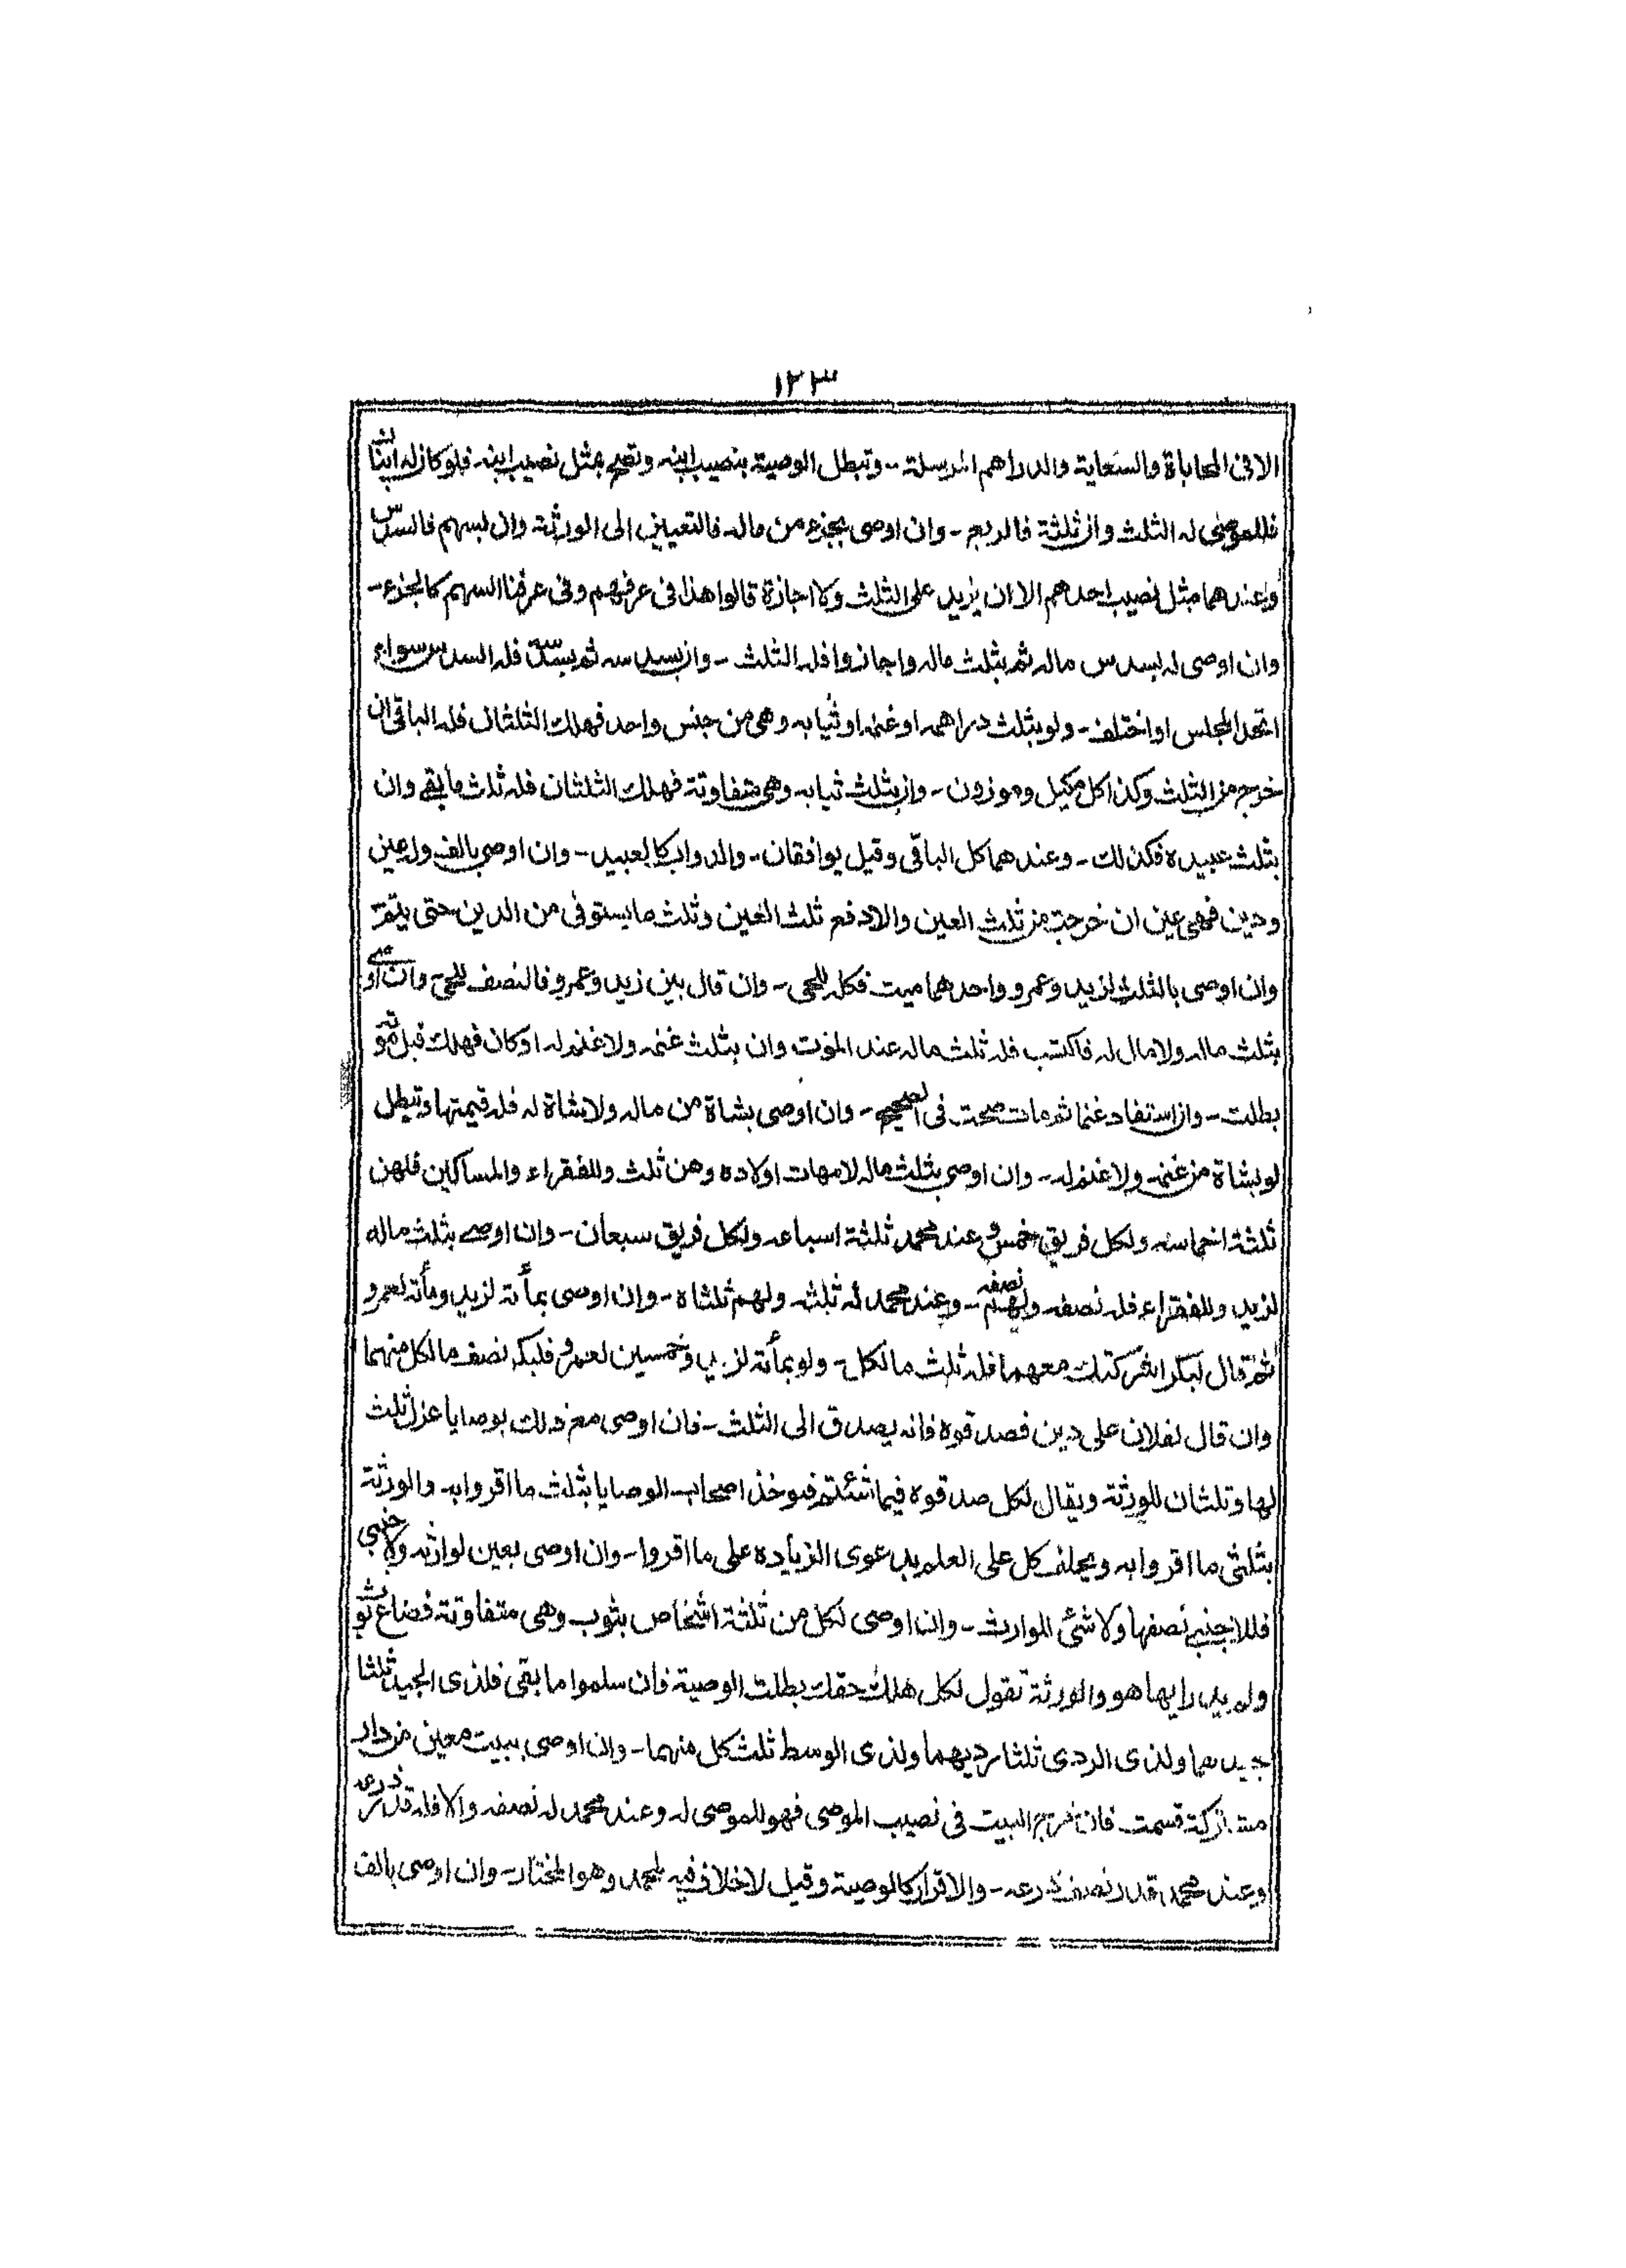 ١٢٣
الا فى المحاباة والسعاية والدراهم المرسلة - وتبطل الوصية بنصيب ابنه وتصح بمثل نصيب ابنه فلو كان له ابنان
فللموصى له الثلث وان ثلثة فالربع - وان اوصى بجزء من ماله فالتعيين الى الورثة وان بسهم فالسدس
وعندهما مثل نصيب احدهم الا ان يزيد على الثلث ولا اجازة قالوا هذا فى عرفهم وفى عرفنا السهم كالجزء -
وان اوصى له بسدس ماله ثم بثلث ماله واجازوا فله الثلث - وان بسدسه ثم بسدسه فله السدس سواء
اتحد المجلس او اختلف - ولو بثلث دراهمه او غنمه او ثيابه وهى من جنس واحد فهلك الثلثان فله الباقى ان
خرج من الثلث وكذا كل مكيل وموزون - وان بثلث ثيابه وهى متفاوتة فهلك الثلثان فله ثلث ما بقى وان
بثلث عبيده فكذلك - وعندهما كل الباقى وقيل يوافقان - والدواب كالعبيد - وان اوصى بالف وله عين
ودين فهى عين ان خرجت من ثلث العين والا دفع ثلث العين وثلث ما يستوفى من الدين حتى يتم
وان اوصى بالثلث لزيد وعمرو واحدهما ميت فكله للحى - وان قال بين زيد وعمرو فالنصف للحى - وان اوصى
بثلث ماله ولا مال له فاكتسب فله ثلث ماله عند الموت وان بثلث غنمه ولا غنم له او كان فهلك قبل موته
بطلت - وان استفاد غنما ثم مات صحت فى الصحيح - وان اوصى بشاة من ماله ولا شاة له فله قيمتها وتبطل
لو بشاة من غنمه ولا غنم له - وان اوصى بثلث ماله لامهات اولاده وهن ثلث وللفقراء والمساكين فلهن
ثلثة اخماسه ولكل فريق خمس وعند محمد ثلثة اسباعه ولكل فريق سبعان - وان اوصى بثلث ماله
لزيد وللفقراء فله نصفه ولهم نصفه - وعند محمد له ثلثه ولهم ثلثاه - وان اوصى بمأته لزيد ومأته لعمرو
ثم قال لبكر اشركتك معهما فله ثلث ما لكل - ولو بمأته لزيد وخمسين لعمرو فلبكر نصف ما لكل منهما
وان قال لفلان على دين فصدقوه فانه يصدق الى الثلث - فان اوصى مع ذلك بوصايا عزل ثلث
لها وثلثان للورثة ويقال لكل صدقوه فيما شئتم فيوخذ اصحاب الوصايا بثلث ما اقروا به والورثة
بثلثى ما اقروا به ويحلف كل على العلم بدعوى الزيادة على ما اقروا - وان اوصى بعين لوارثه ولاجنبى
فللاجنبى نصفها ولا شئ للوارث - وان اوصى لكل من ثلثة اشخاص بثوب وهى متفاوتة فضاع ثوب
ولم يدر ايها هو والورثة تقول لكل هلك حقك بطلت الوصية فان سلموا ما بقى فلذى الجيد ثلثا
جيدهما ولذى الردى ثلثا رديهما ولذى الوسط ثلث كل منهما - وان اوصى ببيت معين من دار
مشتركة قسمت فان خرج البيت فى نصيب الموصى فهو للموصى له وعند محمد له نصفه والا فله قدر ذرعه
وعند محمد قدر نصف ذرعه - والاقرار كالوصية وقيل لا خلاف فيه لمحمد وهو المختار - وان اوصى بالف